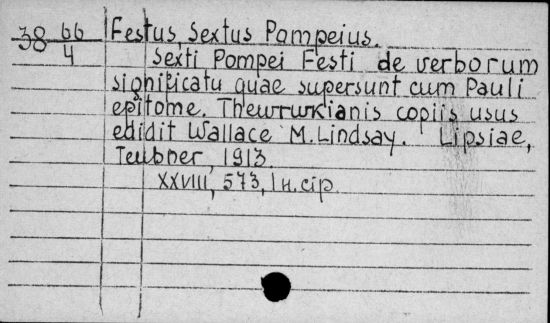 38 66 Festus, Sextus Pompeius.
4 Sexti Pompei Festi de verborum
significatu quae supersunt cum Pauli
epitome. Thewrwkianis copiis usus
edidit Wallace M. Lindsay. Lipsiae,
Teubner, 1913.
XXVIII, 573, 1 н. стр.